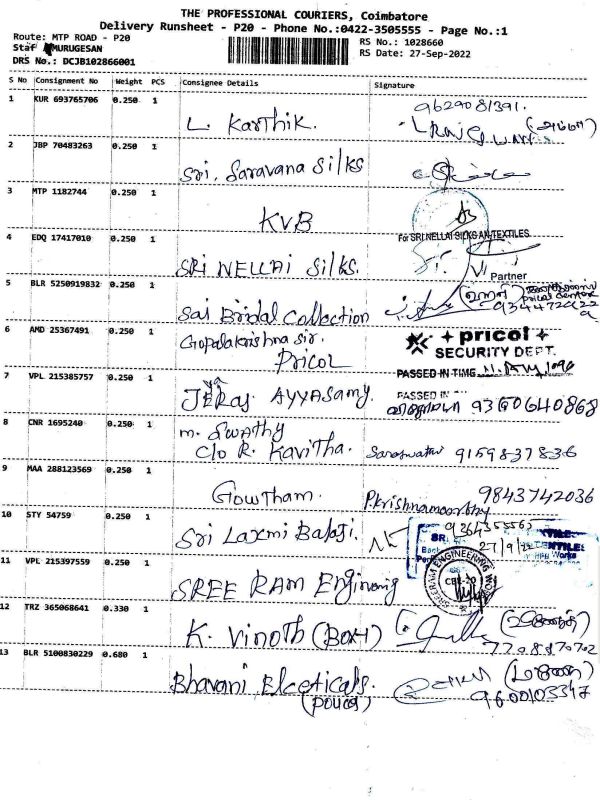 THE PROFESSIONAL COURIERS, Coimbatore
Delivery Runsheet - P20 - Phone No.:0422-3505555 - Page No.:1
Route: MTP ROAD - P20
RS No.: 1028660
Staf MURUGESAN
RS Date: 27-Sep-2022
DRS No.: DCJB102866001
S No Consignment No Weight PCS Consignee Details Signature
1 KUR 693765706 0.250 1 L. Karthik. 9629081391.
2 JBP 70483263 0.250 1 Sri. Saravana Silks
3 MTP 1182744 0.250 1 KVB
For SRI NELLAI SILKS AN TEXTILES
4 EDQ 17417010 0.250 1 SRI NELLAI Silks.
Partner
5 BLR 5250919832 0.250 1 Sai Bridal Collection
6 AMD 25367491 0.250 1 Gopalakrishna Sir.
Pricol
pricol
SECURITY DEPT.
PASSED IN TIME
7 VPL 215385757 0.250 1 JEyaRaj AYYASamy.
PASSED IN
9360640868
8 CNR 1695240 0.250 1 m. Swathy
C/o R. Kavitha. Saraswathi 9159837836
9 MAA 288123569 0.250 1 Gowtham. P.Krishnamoorthy 9843742036
10 STY 54759 0.250 1 Sri Laxmi Balaji.
27/9/22
11 VPL 215397559 0.250 1 SREE RAM Enginering
SREERAM ENGINEERING
CBE-20
12 TRZ 365068641 0.330 1 K. Vinoth (Box)
7708870702
13 BLR 5100830229 0.680 1 Bhavani Elceticals.
(Pouch)
9600103347